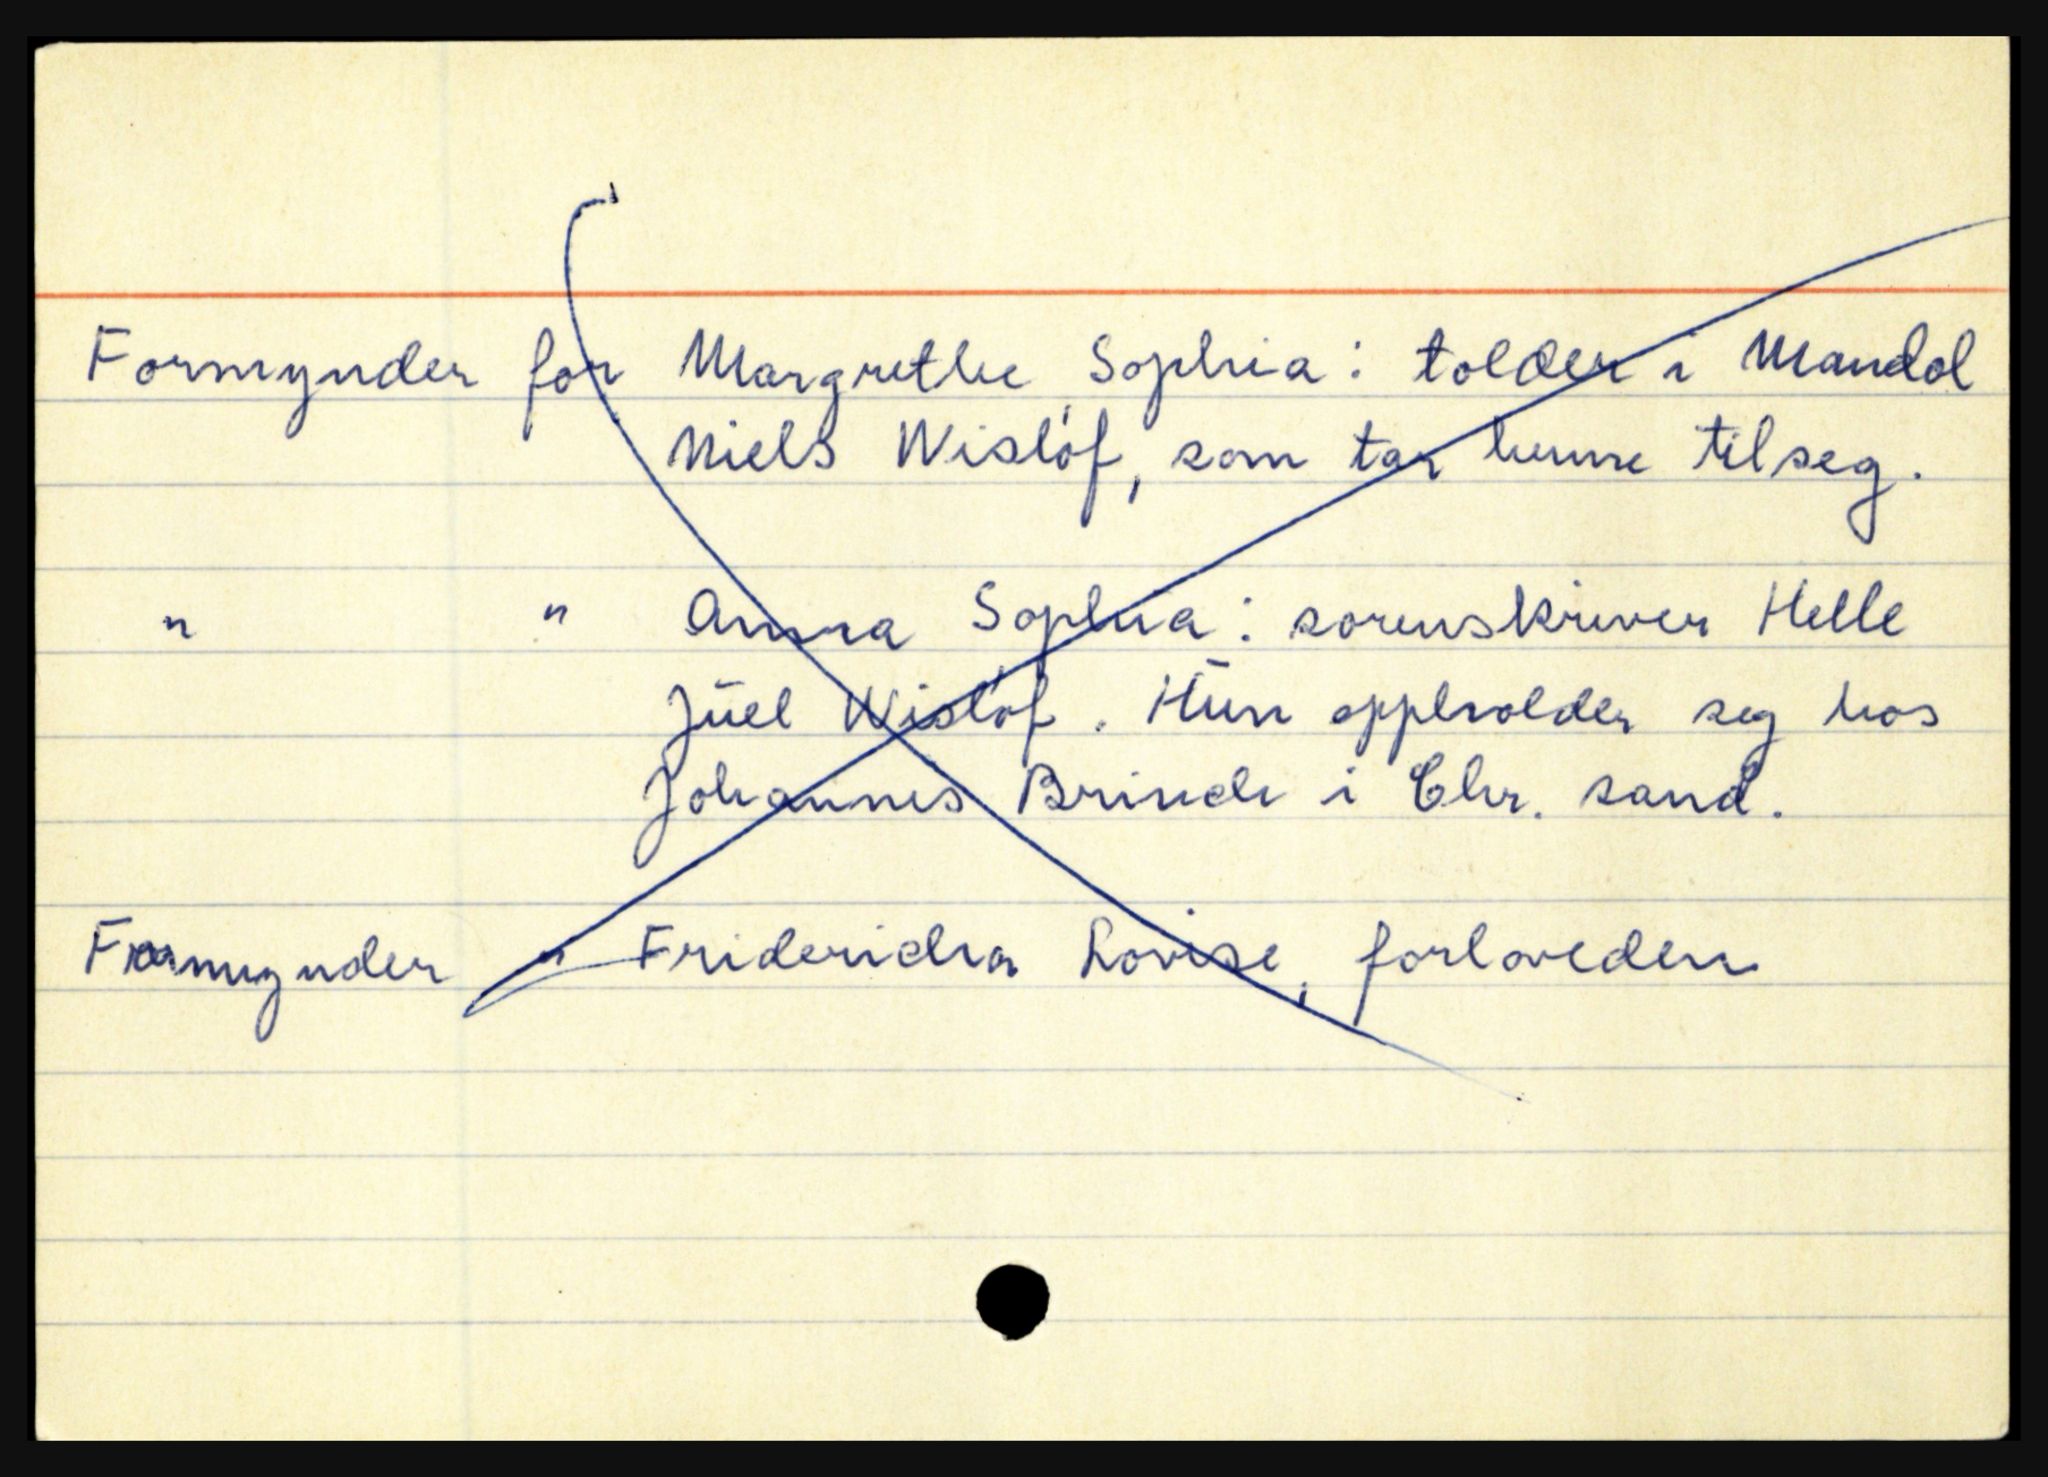 Formynder for Margrethe Sophia: tolder i Mandal
Niels Wisløf, som tar henne til seg.
" " Anna Sophia: sorenskriver Helle
Juel Wisløf. Hun oppholder seg hos
Johannes Brinch i Chr. sand.
Formynder " Fridericha Lovise, forloveden